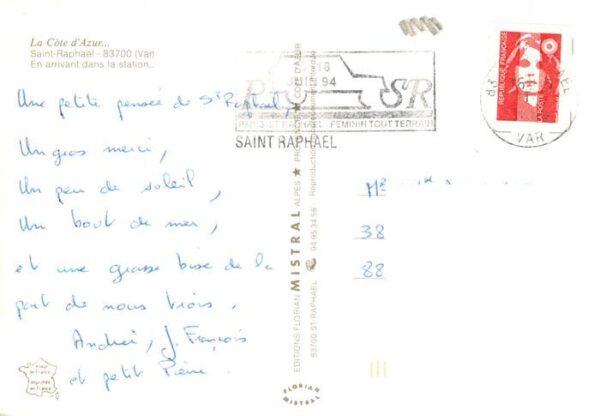 La Côte d'Azur...
Saint-Raphaël - 83700 (Var)
En arrivant dans la station...
Une petite pensée de St Raphaël,
Un gros merci,
Un peu de soleil,
Un bout de mer,
et une grosse bise de la
part de nous trois.
J. François
et petit Pierre.
18
94
SR
PARIS ST RAPHAEL FEMININ TOUT TERRAIN
SAINT RAPHAEL
EDITIONS FLORIAN MISTRAL ALPES ★ PROVENCE ★ CÔTE D'AZUR
83700 ST-RAPHAËL 94.95.34.56 Reproduction
REPUBLIQUE FRANÇAISE
LA POSTE
VAR
38
88
FLORIAN
MISTRAL